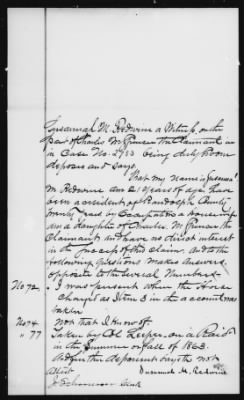 Lusannah M. Redwine a Witness, on the
part of Charles M. Pruner the Claimant as
in Case No. 2983 being duly sworn
deposes and says
That my name is Lusannah
M Redwine am 21 years of age have
been a resident of Randolph County
am a daughter of Charles M. Pruner the
Claimant and have no direct interest
in the proceeds of this claim. And to the
following questions makes answers
opposite to the several numbers
No 72. I was present when the Horse
Charged as Item 3 in the account was
taken
No 74 Not that I know of
" 77 Taken by Col Leeper, on a Raid
in the Summer or fall of 1863.
And further deponent sayeth not
Attest
Redwine
Clerk